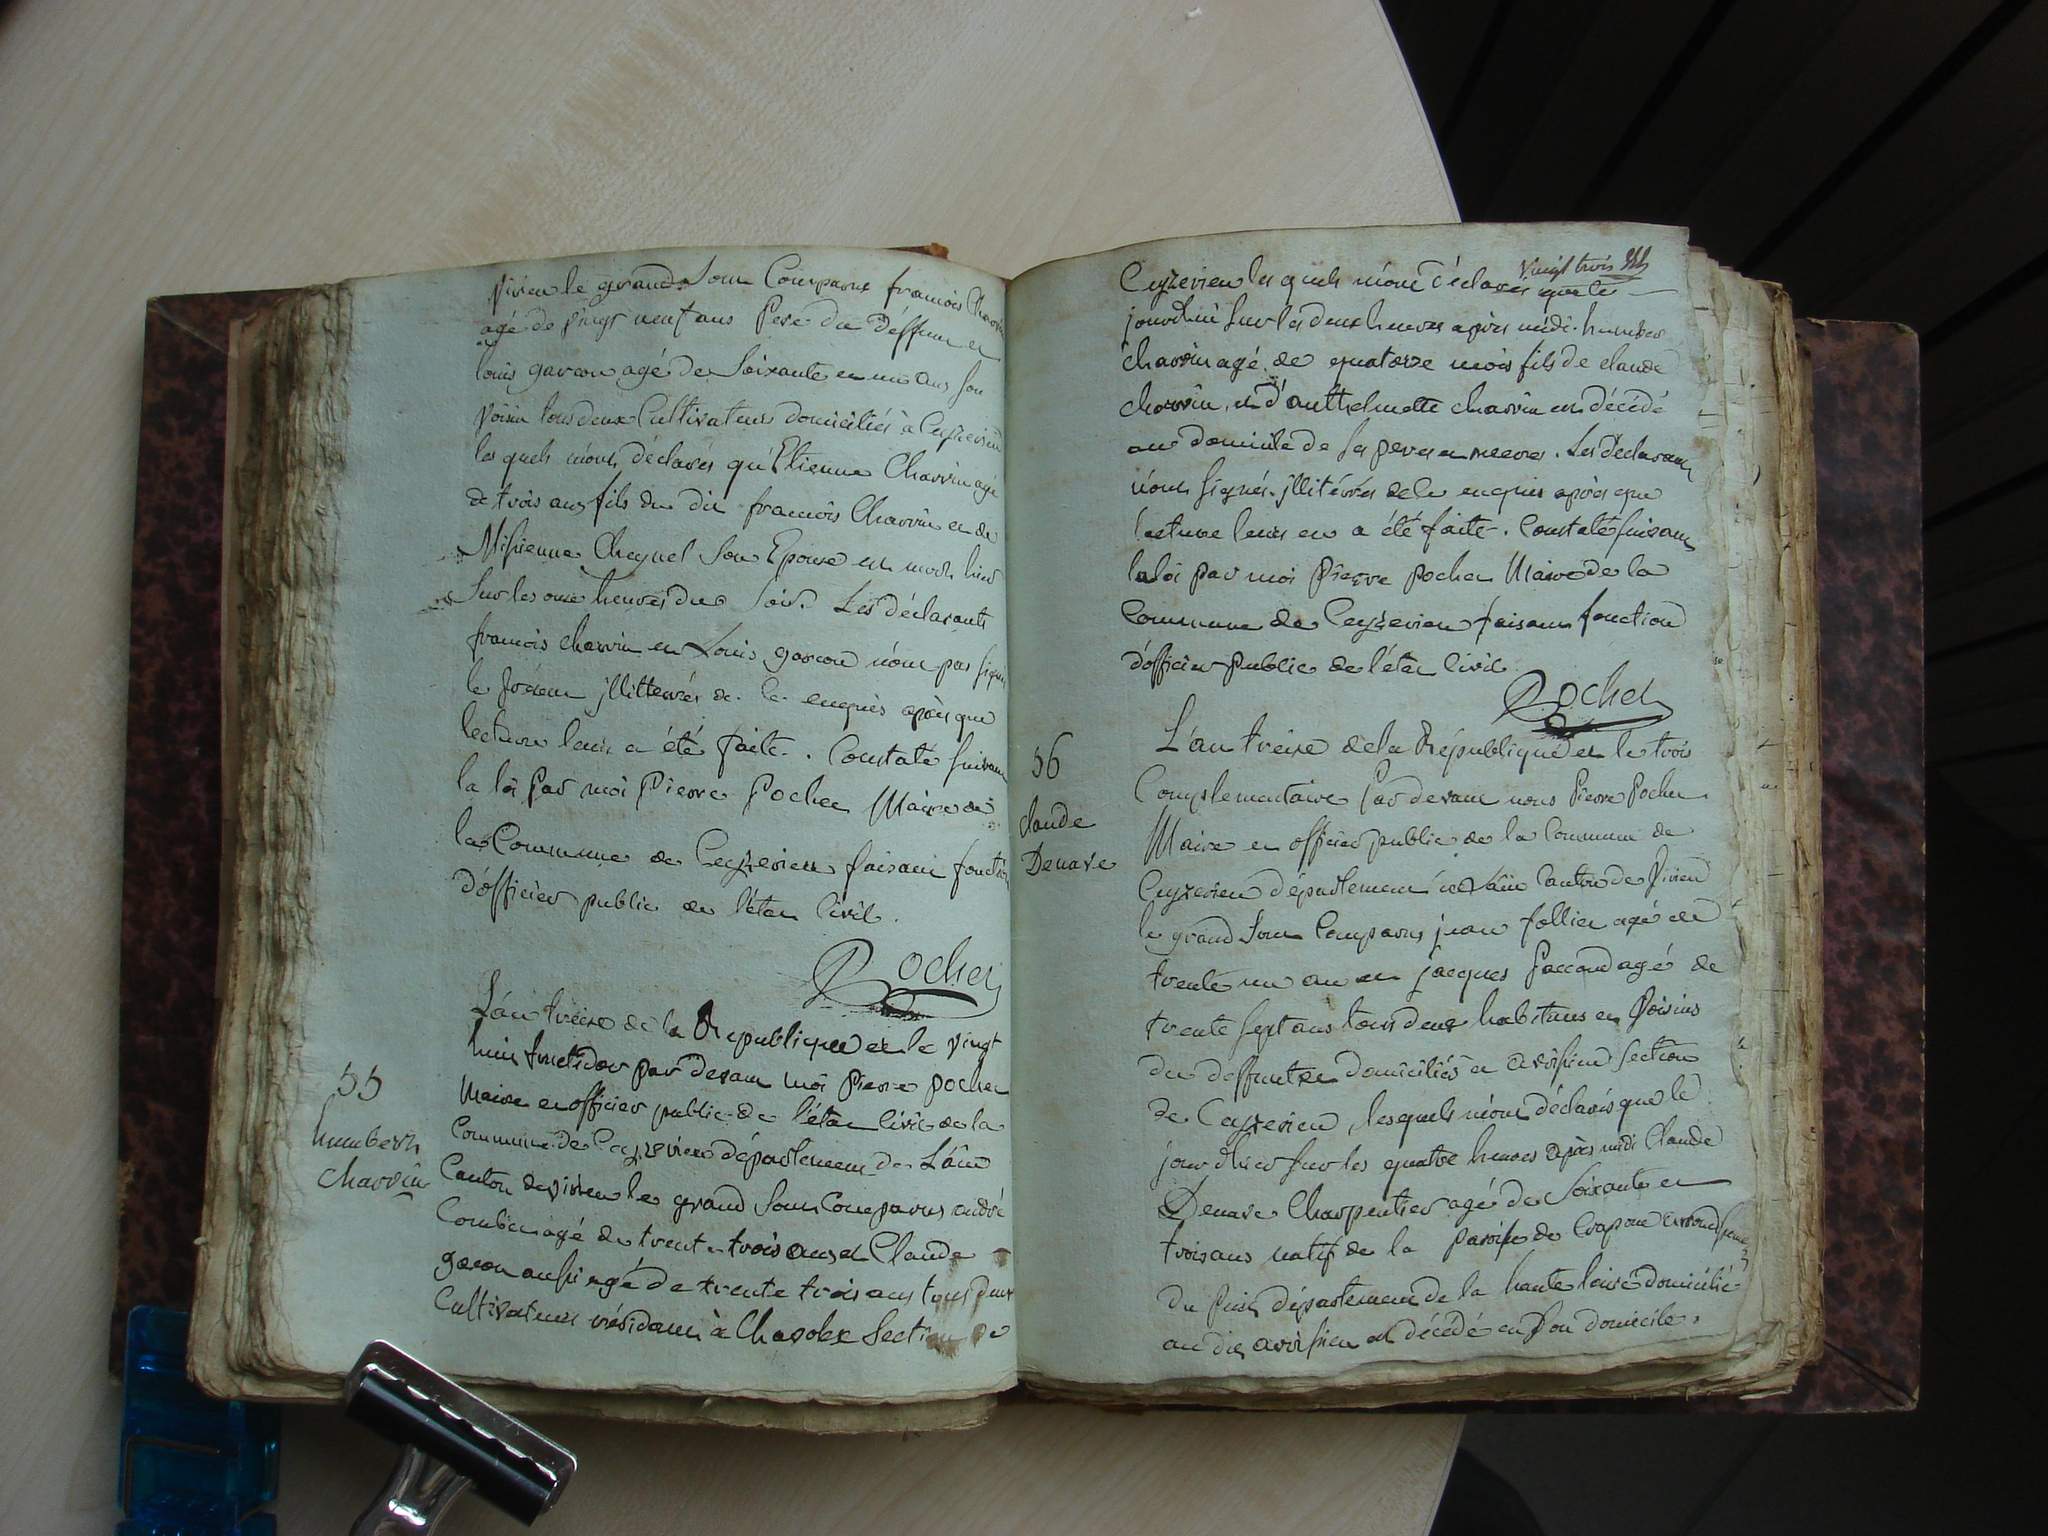 Virieu le grand Sont Comparus francois Charvin
agé de vingt neuf ans Pere du déffunt et
louis garcon agé de Soixante et un ans son
voisin tous deux Cultivateurs domiciliés à Ceyzerieu
les quels m'ont déclarés qu'Etienne Charvin agé
de trois ans fils du dit francois Charvin et de
Cheynel Son Epouse est mort hier
Sur les onze heures du Soir. Les déclarants
francois charvin et Louis garcon n'ont pas signé
le présent illitterrés de le enquis après que
lecture leur a été faite. Constaté suivant
la loi Par moi Pierre Pochet Maire de
la Commune de Ceyzerieu faisant fonction
d'officier public de l'état Civil.
Pochet
55
humbert
charvin
L'an treize de la République et le vingt
huit fructidor par devant moi Pierre pochet
Maire et officier public de l'état Civil de la
Commune de Ceyzerieu département de L'ain
Canton de virieu le grand Sont Comparus andré
Combet agé de trente trois ans et Claude
garcon aussi agé de trente trois ans tous deux
Cultivateurs résidants à Chavolex Section de
vingt trois
Ceyzerieu les quels m'ont déclarés que le
jourd'hui Sur les deux heures après midi humbert
charvin agé de quatorze mois fils de claude
charvin et d'anthelmette charvin est décédé
au domicile de ses peres et meres. Les déclarants
n'ont signés illitérrés de le enquis après que
lecture leurs en a été faite. Constaté suivant
la loi par moi Pierre pochet Maire de la
Commune de Ceyzerieu faisant fonction
d'officier public de l'état Civil
Pochet
56
Claude
Denave
L'an treize de la République et le trois
Complementaire Par devant nous Pierre Pochet
Maire et officier public de la Commune de
Ceyzerieu département de L'ain Canton de Virieu
le grand Sont Comparus jean follier agé de
trente un an et jacques faccond agé de
trente sept ans tous deux habitans et Voisins
du deffunt domiciliés à avrissieu section
de Ceyzerieu, lesquels m'ont déclarés que le
jour d'hier Sur les quatre heures après midi Claude
Denave Charpentier agé de Soixante et
trois ans natif de la paroisse de Crapone arrondissement
du Puis département de la haute loire domicilié
au dit avrissieu est décédé en Son domicile.